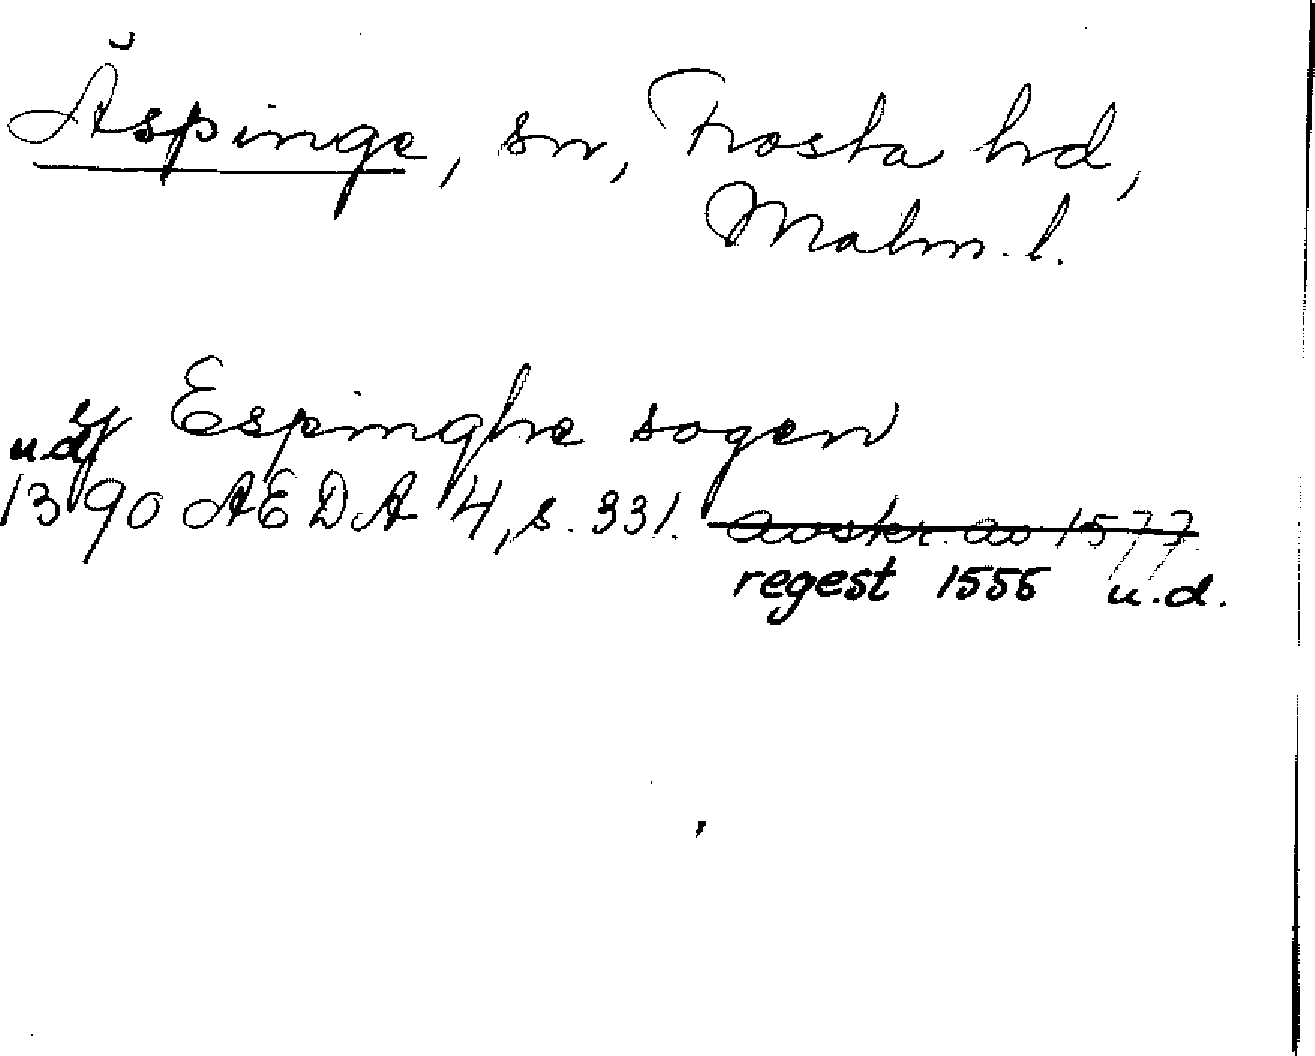 Äspinge, sn, Frosta hd,
Malm. l.
Espinghe sogen
u.d.
1390 AEDA 4, s. 331. avskr. av 1577
regest 1556 u.d.